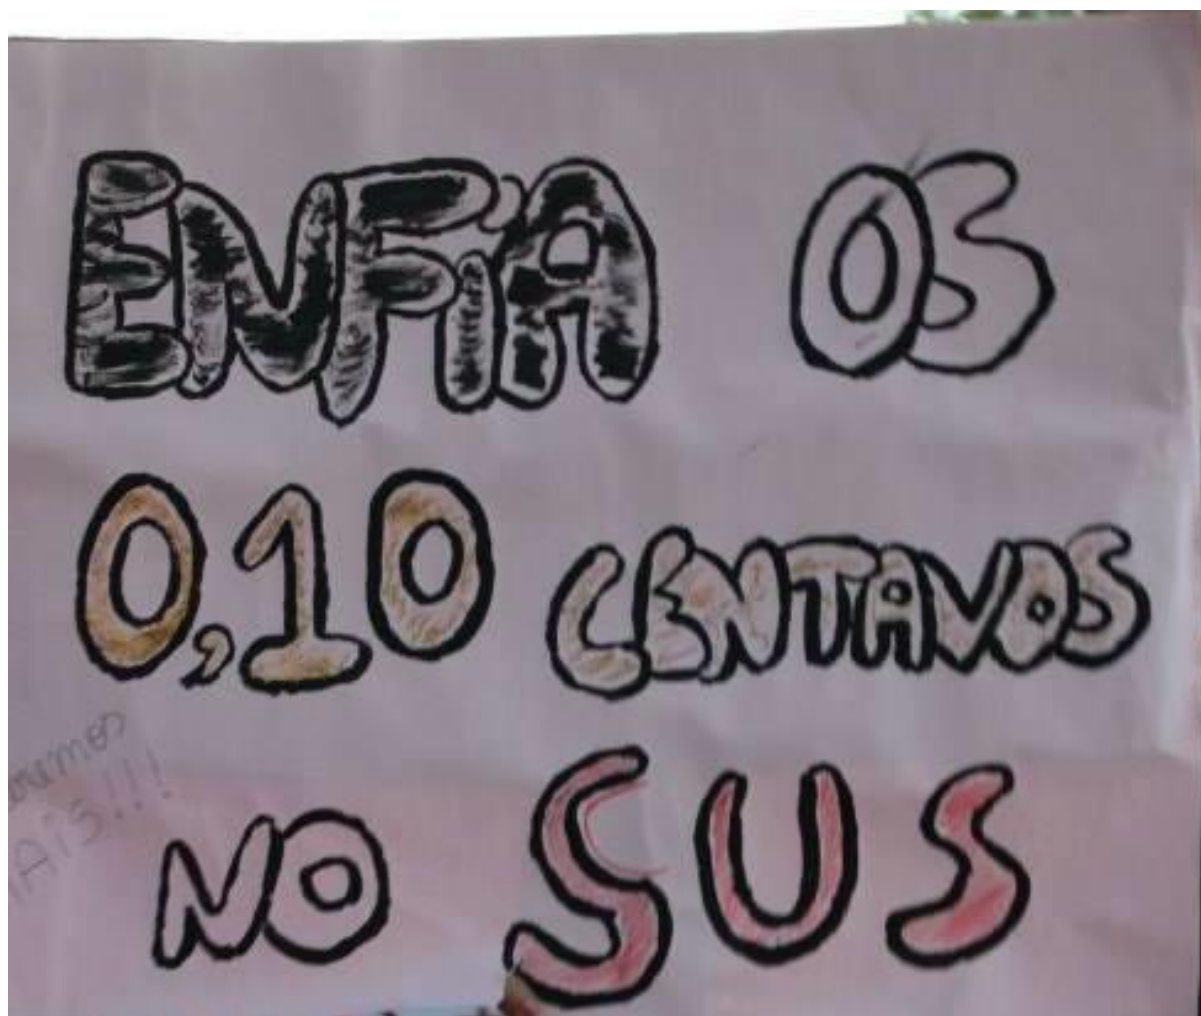 ENFiA OS
0,10 CENTAVOS
NO SUS
AiS!!!